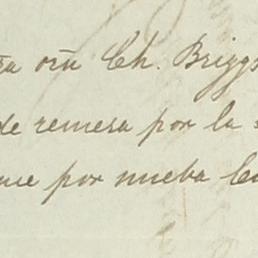 orñ Ch. Briggs
de remesa por la
me por nueba